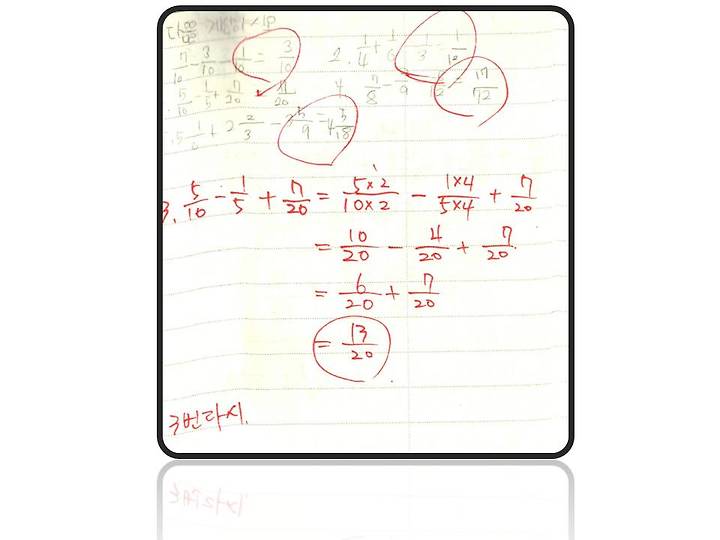 다음 계산하시오
7/10 - 3/10 - 1/10 = 3/10
2. 1/4 + 1/6 1/3 = 1/12
5/10 - 1/5 + 7/20 20
4 7/8 - 9 12 17/72
5 1/6 + 2 2/3 - 3 5/9 = 4 5/18
3. 5/10 - 1/5 + 7/20 = 5×2/10×2 - 1×4/5×4 + 7/20
= 10/20 - 4/20 + 7/20
= 6/20 + 7/20
= 13/20
3번 다시.